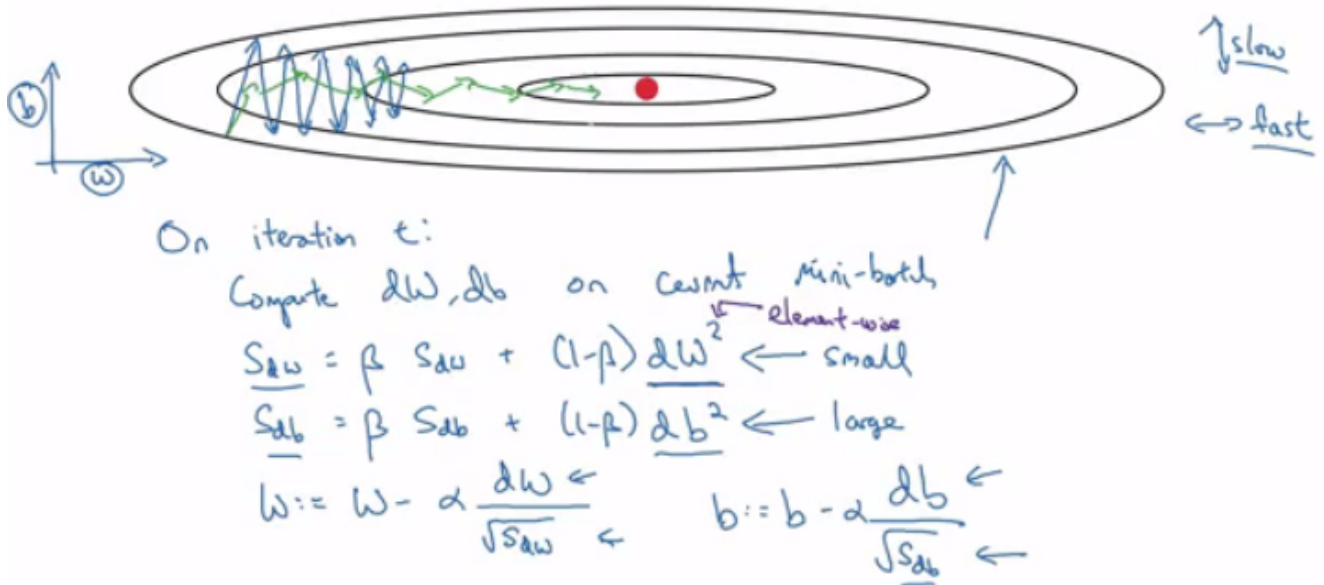 b
w
slow
fast
On iteration t:
Compute dW, db on current mini-batch
element-wise
S_dw = β S_dw + (1-β) dW² ← small
S_db = β S_db + (1-β) db² ← large
W := W - α dW / √S_dw ← b := b - α db / √S_db ←